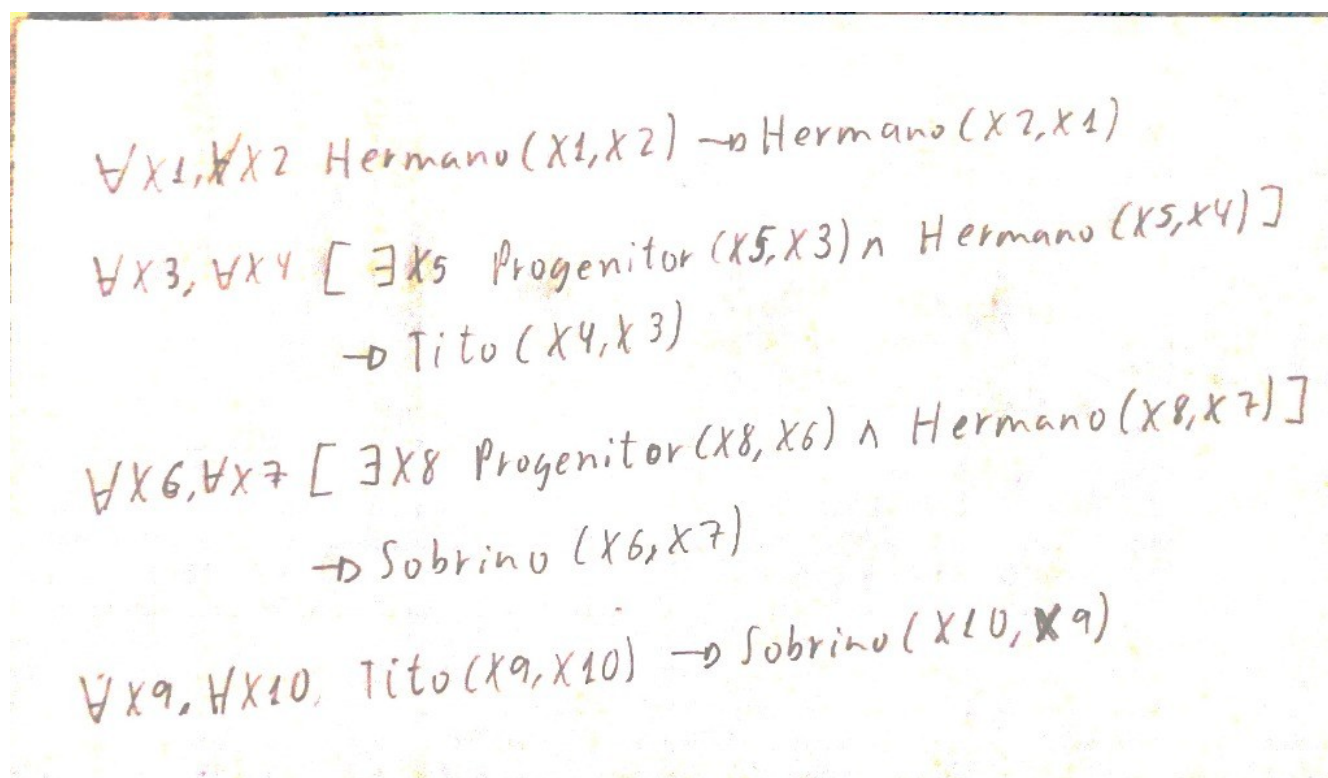 ∀X1,∀X2 Hermano(X1,X2) → Hermano(X2,X1)
∀X3, ∀X4 [ ∃X5 Progenitor(X5,X3) ∧ Hermano(X5,X4)]
→ Tito(X4,X3)
∀X6,∀X7 [ ∃X8 Progenitor(X8,X6) ∧ Hermano(X8,X7)]
→ Sobrino(X6,X7)
∀X9, ∀X10, Tito(X9,X10) → Sobrino(X10,X9)